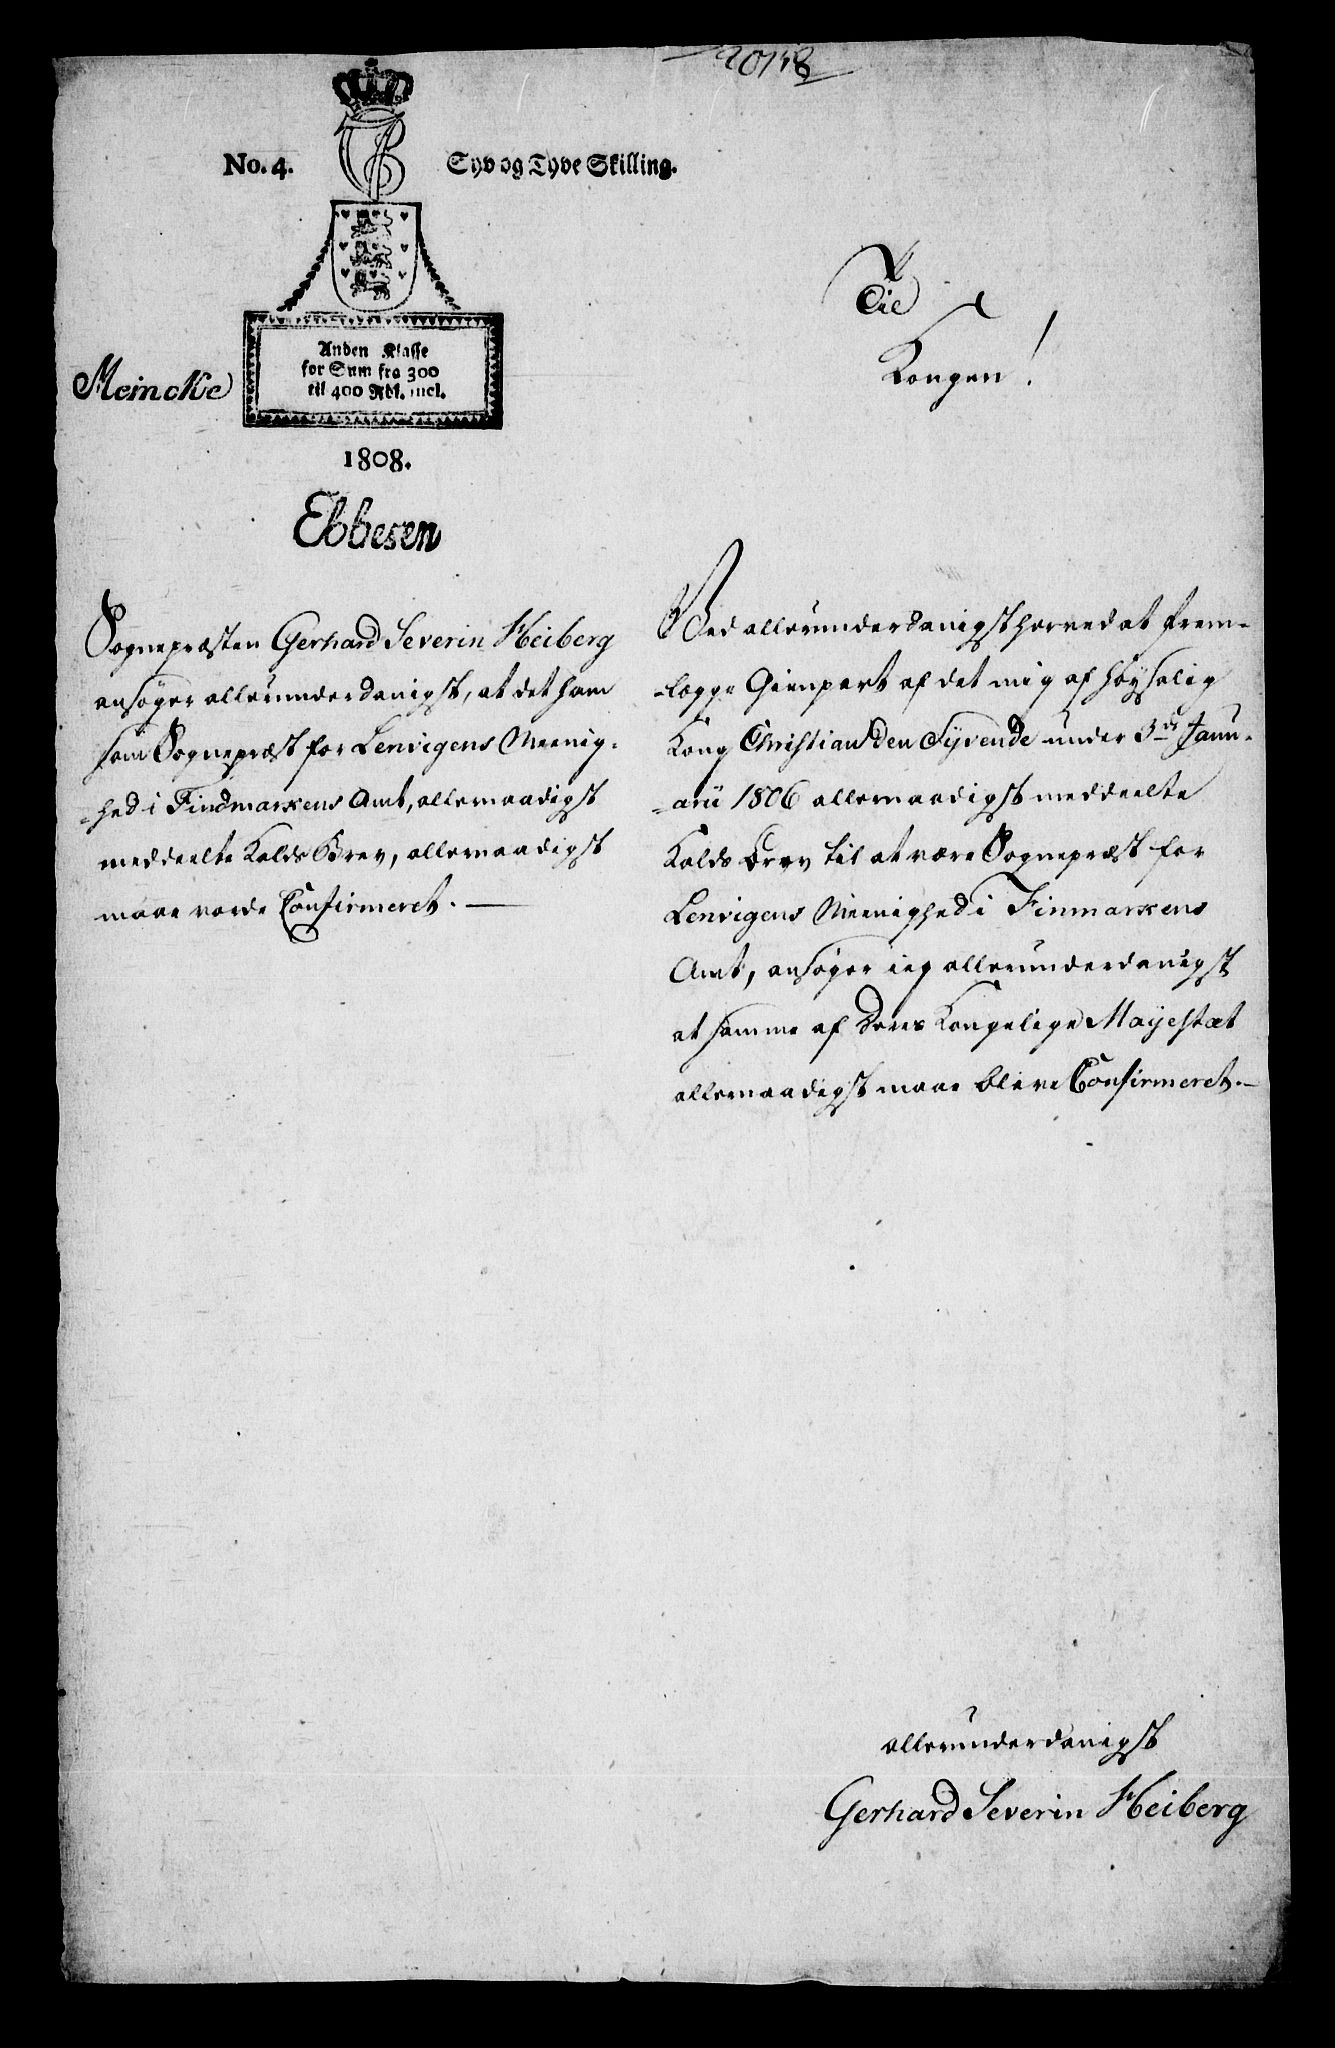 20148
No. 4.
Syv og Tyve Skilling.
Anden Klasse
for Sum fra 300
til 400 Rdl. incl.
Meincke
1808.
Ebbesen
Til
Kongen!
Sognepræsten Gerhard Severin Heiberg
ansøger allerunderdanigst, at det ham
som Sognepræst for Lenvigens Meenig-
-hed i Findmarkens Amt, allernaadigst
meddeelte Kalds Brev, allernaadigst
maae vorde Confirmeret. —
Ved allerunderdanigst herved at frem-
-lægge Gienpart af det mig af høysalig
Kong Christian den Syvende under 3de Janu-
-arii 1806 allernaadigst meddeelte
Kalds Brev til at være Sognepræst for
Lenvigens Meenighed i Finmarkens
Amt, ansøger ieg allerunderdanigst
at samme af Deres Kongelige Mayestæt
allernaadigst maae blive Confirmeret. —
allerunderdanigst
Gerhard Severin Heiberg